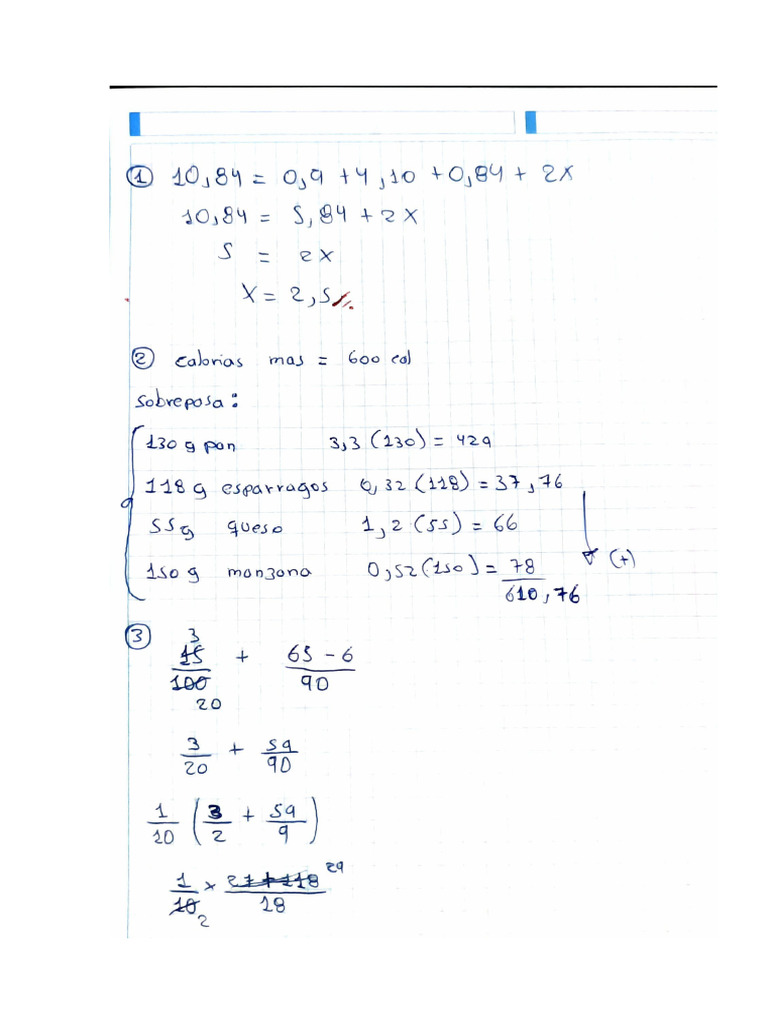 ① 10,84 = 0,9 + 4,10 + 0,84 + 2x
10,84 = 5,84 + 2x
5 = 2x
x = 2,5//.
② calorias mas = 600 cal
sobreposa:
130 g pan 3,3 (130) = 429
118 g esparragos 0,32 (118) = 37,76
55g queso 1,2 (55) = 66
150 g manzana 0,52 (150) = 78 (+)
610,76
③ 3
15/100 + 65 - 6/90
20
3/20 + 59/90
1/10 (3/2 + 59/9)
1/10 x 27+118/18 29
2